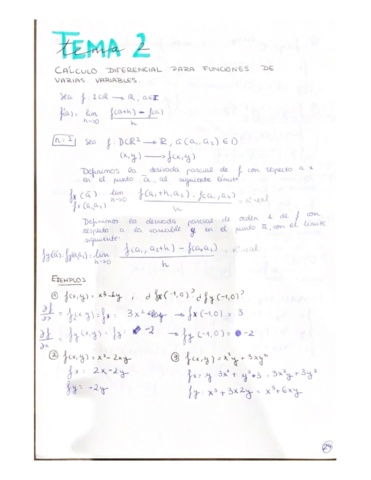 TEMA 2
CÁLCULO DIFERENCIAL PARA FUNCIONES DE
VARIAS VARIABLES.
Sea f: I⊂R → R, a∈I
f'(a) = lim h→0 f(a+h) - f(a) / h
Sea f: D⊂R² → R, ā(a₁,a₂) ∈ D
(x,y) → f(x,y)
Definimos la derivada parcial de f con respecto a x
en el punto ā, al siguiente límite
fx(ā) = lim h→0 f(a₁+h,a₂) - f(a₁,a₂) / h
fx(a₁,a₂)
Definimos la derivada parcial de orden 1 de f con
respecto a la variable y en el punto ā, con el límite
siguiente
fy(ā) = fy(a₁,a₂) = lim h→0 f(a₁,a₂+h) - f(a₁,a₂) / h
EJEMPLOS
fx(-1,0) = 3
fy(-1,0) = -2
② f(x,y) = x² - 2xy
fx = 2x - 2y
fy = -2y
③ f(x,y) = x³y + 3xy²
fx = y 3x² + y² 3 = 3x²y + 3y²
fy = x³ + 3x2y = x³ + 6xy